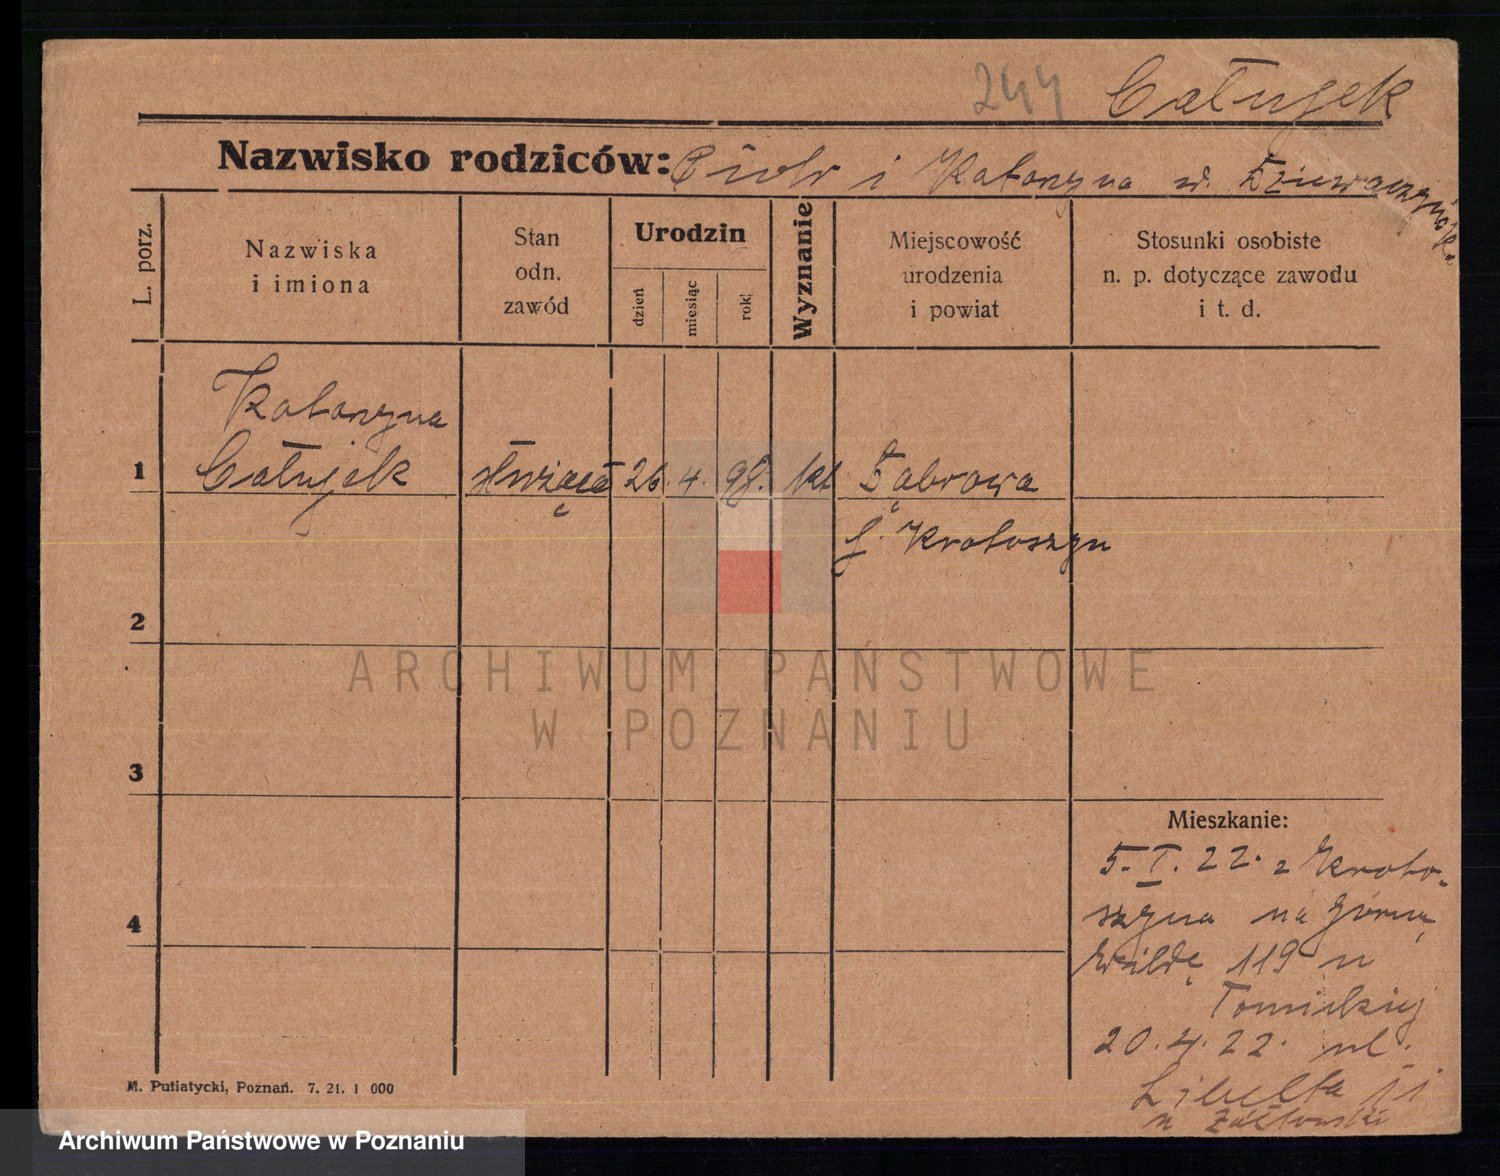 244 Całujek
Nazwisko rodziców: Piotr i Katarzyna
L. porz.
Nazwiska
i imiona
Stan
odn.
zawód
Urodzin
dzień
miesiąc
rok
Wyznanie
Miejscowość
urodzenia
i powiat
Stosunki osobiste
n. p. dotyczące zawodu
i t. d.
Katarzyna
1 Całujek służąca 26. 4. 98. kt Dąbrowa
p. Krotoszyn
2
ARCHIWUM PAŃSTWOWE
W POZNANIU
3
Mieszkanie:
5. I. 22. z Kroto-
szyna na Górną
4
Wildę 119 u
Tomickiej
20. 4. 22. ul.
Libelta
u
M. Putiatycki, Poznań. 7. 21. 1 000
Archiwum Państwowe w Poznaniu